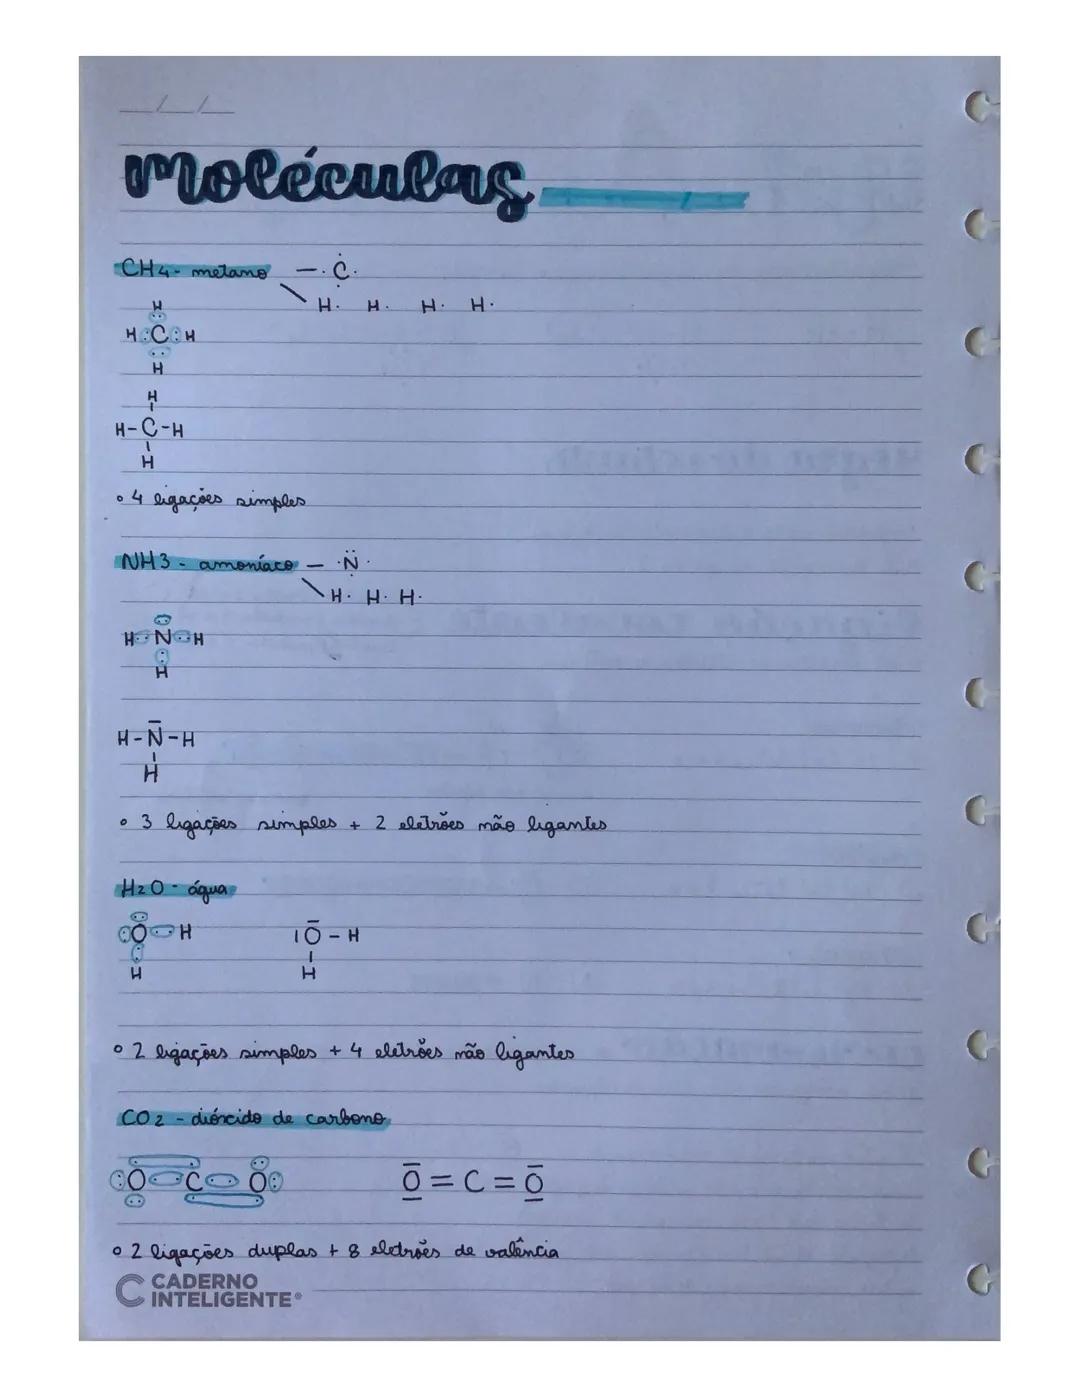 __/__/__
moléculas
CH4 - metano — · C ·
H· H· H· H·
H
H : C : H
H
H
H - C - H
H
• 4 ligações simples
NH3 - amoníaco — · N ·
H· H· H·
H N H
H
H - N - H
H
• 3 ligações simples + 2 eletrões não ligantes
H2O - água
O H
H
| O - H
H
• 2 ligações simples + 4 eletrões não ligantes
CO2 - dióxido de carbono
O C O
O = C = O
• 2 ligações duplas + 8 eletrões de valência
CADERNO
INTELIGENTE®